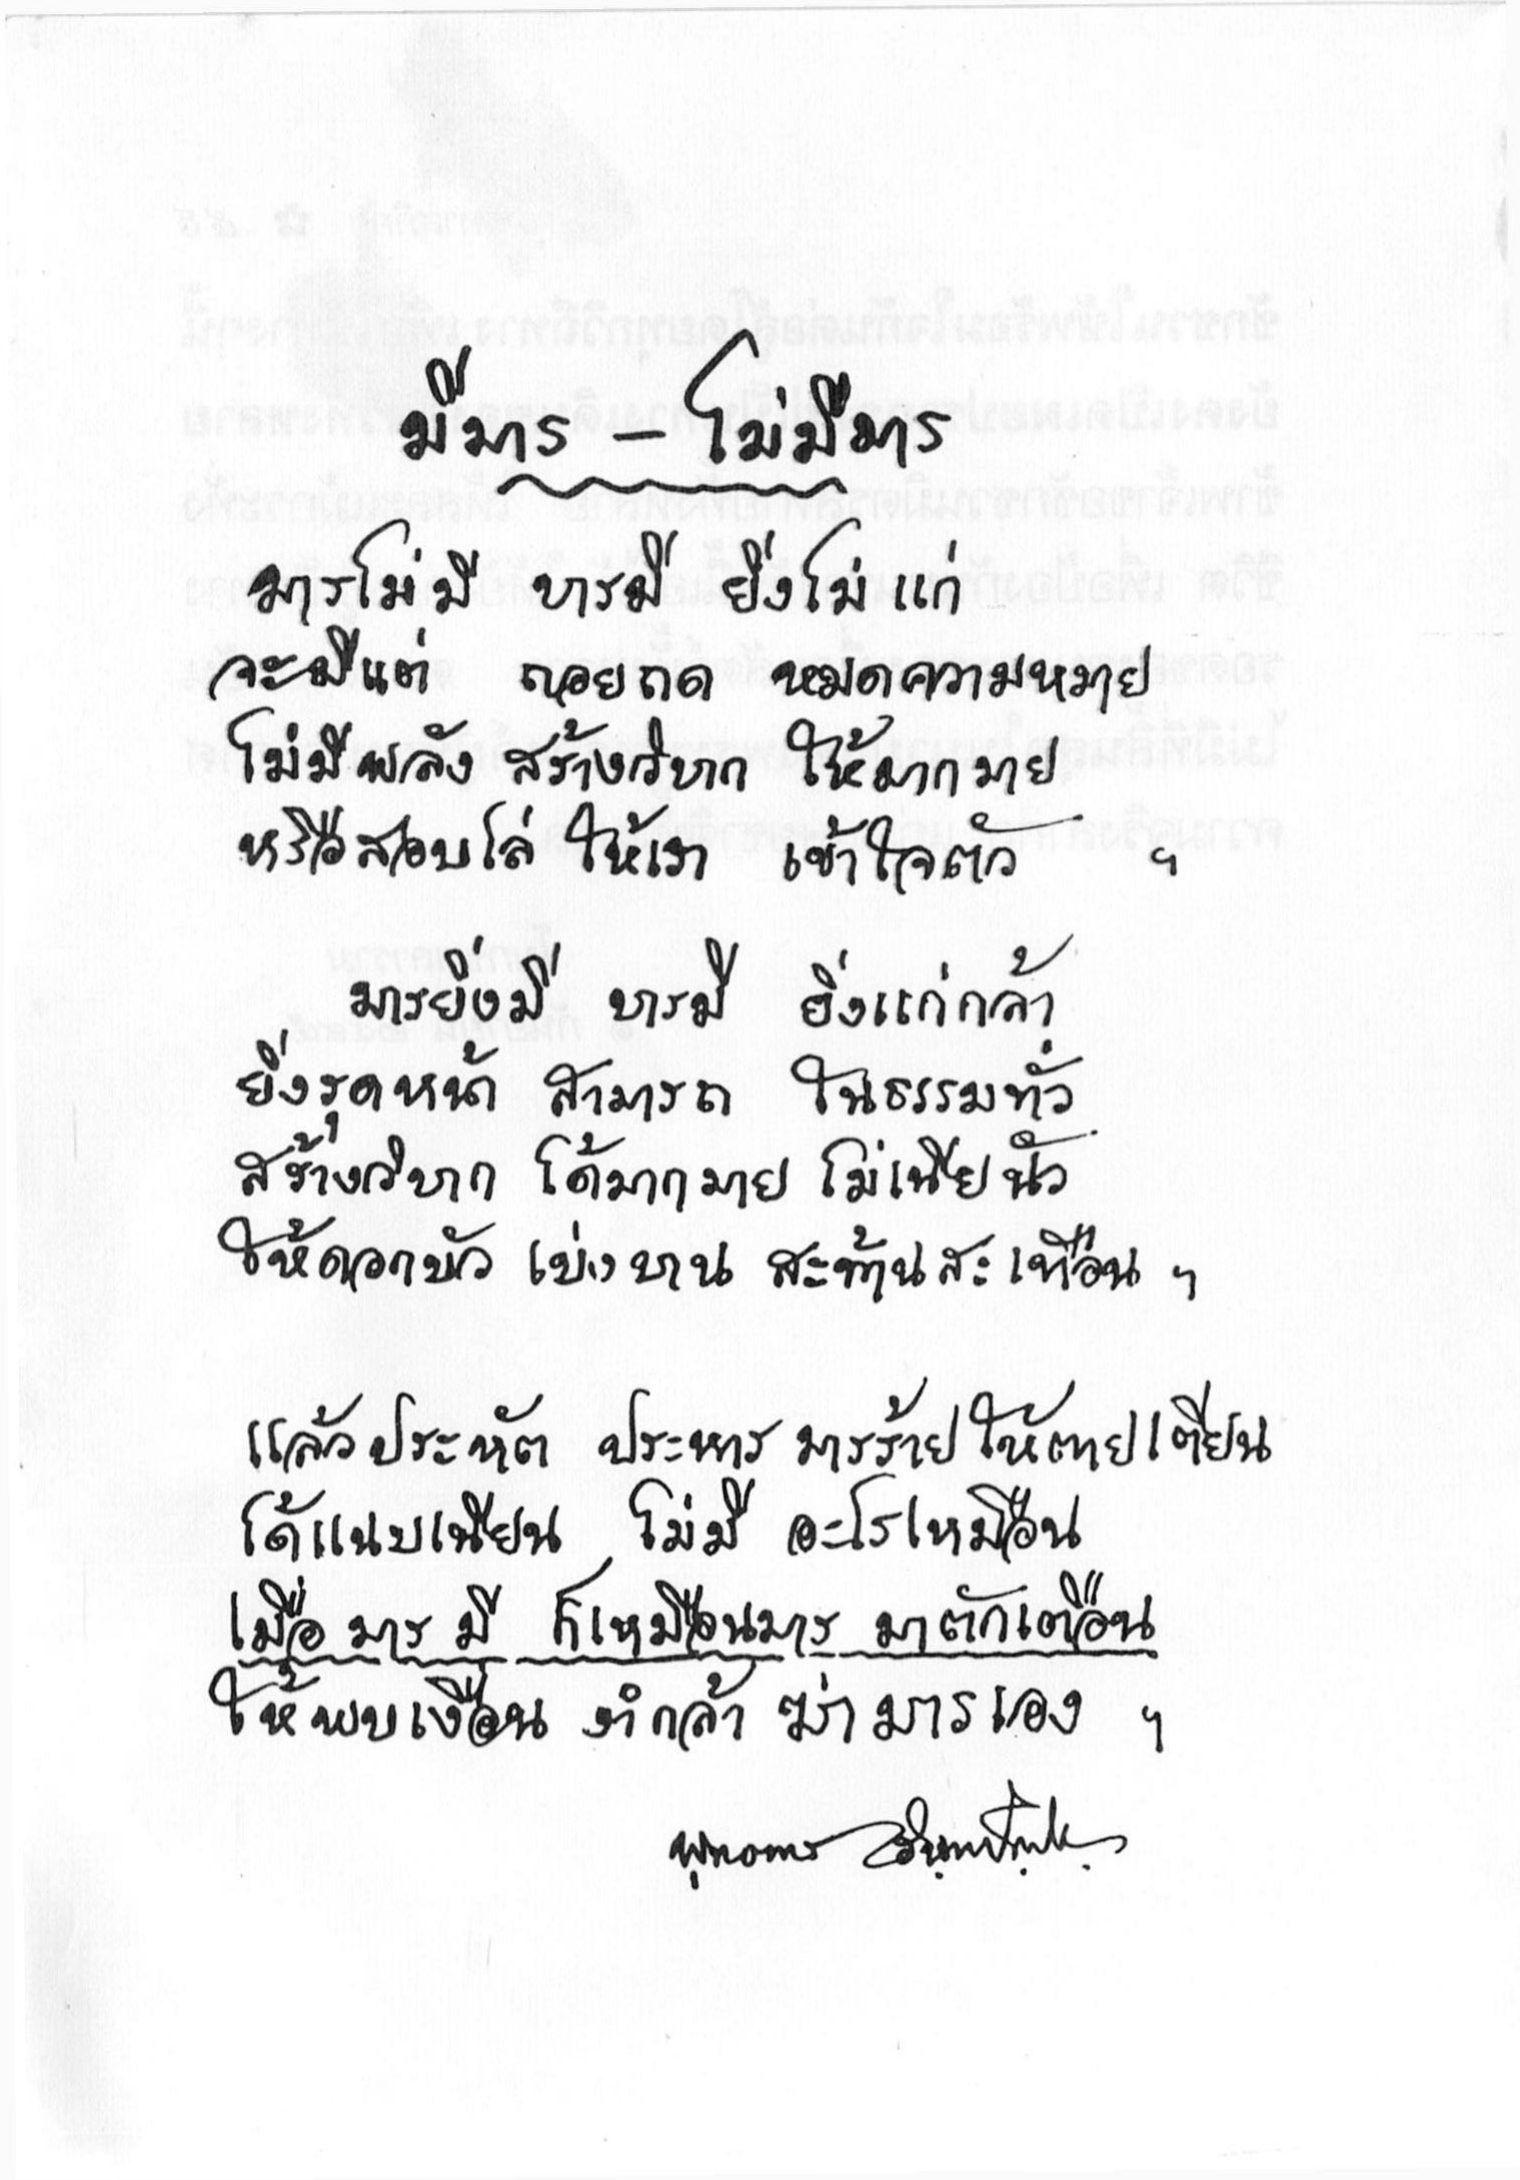 มีมาร – ไม่มีมาร
มารไม่มี บารมี ยิ่งไม่แก่
จะมีแต่ ถอยถด หมดความหมาย
ไม่มีพลัง สร้างวิบาก ให้มากมาย
หรือสอบไล่ ให้เรา เข้าใจตัว ฯ
มารยิ่งมี บารมี ยิ่งแก่กล้า
ยิ่งรุดหน้า สามารถ ในธรรมทั่ว
สร้างวิบาก ได้มากมาย ไม่เนียนัว
ให้ดอกบัว เบ่งบาน สะท้านสะเทือน ฯ
แล้วประหัต ประหาร มารร้ายให้ตายเตียน
ได้แนบเนียน ไม่มี อะไรเหมือน
เมื่อมาร มี ก็เหมือนมาร มาตักเตือน
ให้พบเงื่อน งำกล้า ฆ่ามารเอง ฯ
พุทธทาส อินฺทปญฺโญ